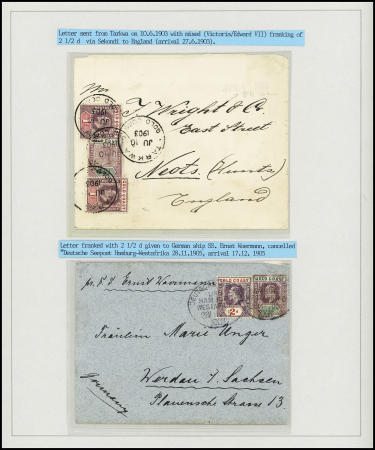 Letter sent from Tarkwa on 10.6.1903 with mixed (Victoria/Edward VII) franking of
2 1/2 d via Sekondi to England (arrival 27.6.1903).
T. Wright & Co.
East Street
Neots. (Hunts)
England
TARKWA
JU 10
1903
Letter franked with 2 1/2 d given to German ship SS. Ernst Woermann, cancelled
"Deutsche Seepost Hamburg-Westafrika 28.11.1905, arrival 17.12. 1905
per S. D. Ernst Woermann
GOLD COAST
GOLD COAST
Fräulein Marie Unger
Werdau i/ Sachsen
Plauensche Strasse 13.
Germany